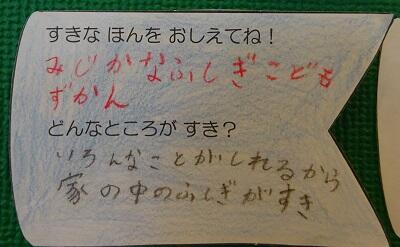 すきな ほんを おしえてね！
みじかなふしぎこども
ずかん
どんなところが すき？
いろんなことがしれるから
家の中のふしぎがすき